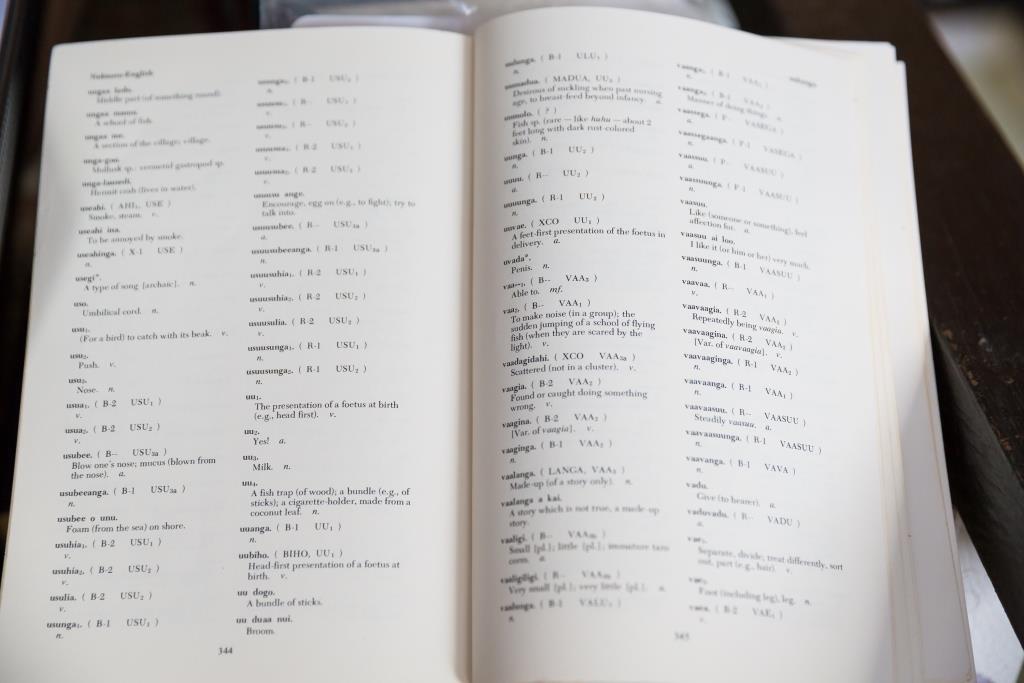 Nukuoro-English
ungaa lodo.
Middle part (of something round).
ungaa manu.
A school of fish.
ungaa me.
A section of the village; village.
unga-goo.
Mollusk sp.: vermetid gastropod sp.
unga-lausedi.
Hermit crab (lives in water).
useahi. ( AHI₁, USE )
Smoke, steam. v.
useahi ina.
To be annoyed by smoke.
useahinga. ( X-1 USE )
n.
usegi*.
A type of song [archaic]. n.
uso.
Umbilical cord. n.
usu₁.
(For a bird) to catch with its beak. v.
usu₂.
Push. v.
usu₃.
Nose. n.
usua₁. ( B-2 USU₁ )
v.
usua₂. ( B-2 USU₂ )
v.
usubee. ( B-- USU₃ₐ )
Blow one's nose; mucus (blown from
the nose). a.
usubeeanga. ( B-1 USU₃ₐ )
n.
usubee o unu.
Foam (from the sea) on shore.
usuhia₁. ( B-2 USU₁ )
v.
usuhia₂. ( B-2 USU₂ )
v.
usulia. ( B-2 USU₂ )
v.
usunga₁. ( B-1 USU₁ )
n.
usunga₂. ( B-1 USU₂ )
n.
( R-- USU₁ )
v.
( R-- USU₂ )
v.
( R-2 USU₁ )
v.
( R-2 USU₂ )
v.
usuusu ange.
Encourage, egg on (e.g., to fight); try to
talk into.
usuusubee. ( R-- USU₃ₐ )
a.
usuusubeeanga. ( R-1 USU₃ₐ )
n.
usuusuhia₁. ( R-2 USU₁ )
v.
usuusuhia₂. ( R-2 USU₂ )
v.
usuusulia. ( R-2 USU₂ )
v.
usuusunga₁. ( R-1 USU₁ )
n.
usuusunga₂. ( R-1 USU₂ )
n.
uu₁.
The presentation of a foetus at birth
(e.g., head first). v.
uu₂.
Yes! a.
uu₃.
Milk. n.
uu₄.
A fish trap (of wood); a bundle (e.g., of
sticks); a cigarette-holder, made from a
coconut leaf. n.
uuanga. ( B-1 UU₁ )
n.
uubiho. ( BIHO, UU₁ )
Head-first presentation of a foetus at
birth. v.
uu dogo.
A bundle of sticks.
uu duaa nui.
Broom.
344
uulunga. ( B-1 ULU₁ )
n.
uumadua. ( MADUA, UU₃ )
Desirous of suckling when past nursing
age, to breast-feed beyond infancy. a.
uumolo. ( ? )
Fish sp. (rare — like huhu — about 2
feet long with dark rust-colored
skin). n.
uunga. ( B-1 UU₂ )
n.
uuuu. ( R-- UU₂ )
a.
uuuunga. ( R-1 UU₂ )
n.
uuvae. ( XCO UU₁ )
A feet-first presentation of the foetus in
delivery. a.
uvada*.
Penis. n.
vaa--₃. ( B-- VAA₃ )
Able to. mf.
vaa₂. ( B-- VAA₁ )
To make noise (in a group); the
sudden jumping of a school of flying
fish (when they are scared by the
light). v.
vaadagidahi. ( XCO VAA₃ₐ )
Scattered (not in a cluster). v.
vaagia. ( B-2 VAA₂ )
Found or caught doing something
wrong. v.
vaagina. ( B-2 VAA₂ )
[Var. of vaagia]. v.
vaaginga. ( B-1 VAA₂ )
n.
vaalanga. ( LANGA, VAA₃ )
Made-up (of a story only). n.
vaalanga a kai.
A story which is not true, a made-up
story.
vaaligi. ( B-- )
Small [pl.]; little [pl.]; immature taro
corm. a.
vaaligiligi. ( R-- )
Very small [pl.]; very little [pl.]. a.
vaalunga. ( B-1 VALU₁ )
n.
345
uulunga
vaanga₁. ( B-1 VAA₁ )
n.
vaanga₂. ( B-1 VAA₂ )
Manner of doing things. n.
vaasega. ( P-- VASEGA )
a.
vaasegaanga. ( P-1 VASEGA )
n.
vaasuu. ( P-- VASUU )
a.
vaasuunga. ( P-1 VASUU )
n.
vaasuu.
Like (someone or something), feel
affection for. a.
vaasuu ai loo.
I like it (or him or her) very much.
vaasuunga. ( B-1 VAASUU )
n.
vaavaa. ( R-- VAA₁ )
v.
vaavaagia. ( R-2 VAA₂ )
Repeatedly being vaagia. v.
vaavaagina. ( R-2 VAA₂ )
[Var. of vaavaagia]. v.
vaavaaginga. ( R-1 VAA₂ )
n.
vaavaanga. ( R-1 VAA₁ )
n.
vaavaasuu. ( R-- VAASUU )
Steadily vaasuu. a.
vaavaasuunga. ( R-1 VAASUU )
n.
vaavanga. ( B-1 VAVA )
n.
vadu.
Give (to hearer). a.
vaduvadu. ( R-- VADU )
a.
vae₁.
Separate, divide; treat differently, sort
out, part (e.g., hair). v.
vae₂.
Foot (including leg), leg. n.
vaea. ( B-2 VAE₁ )
v.